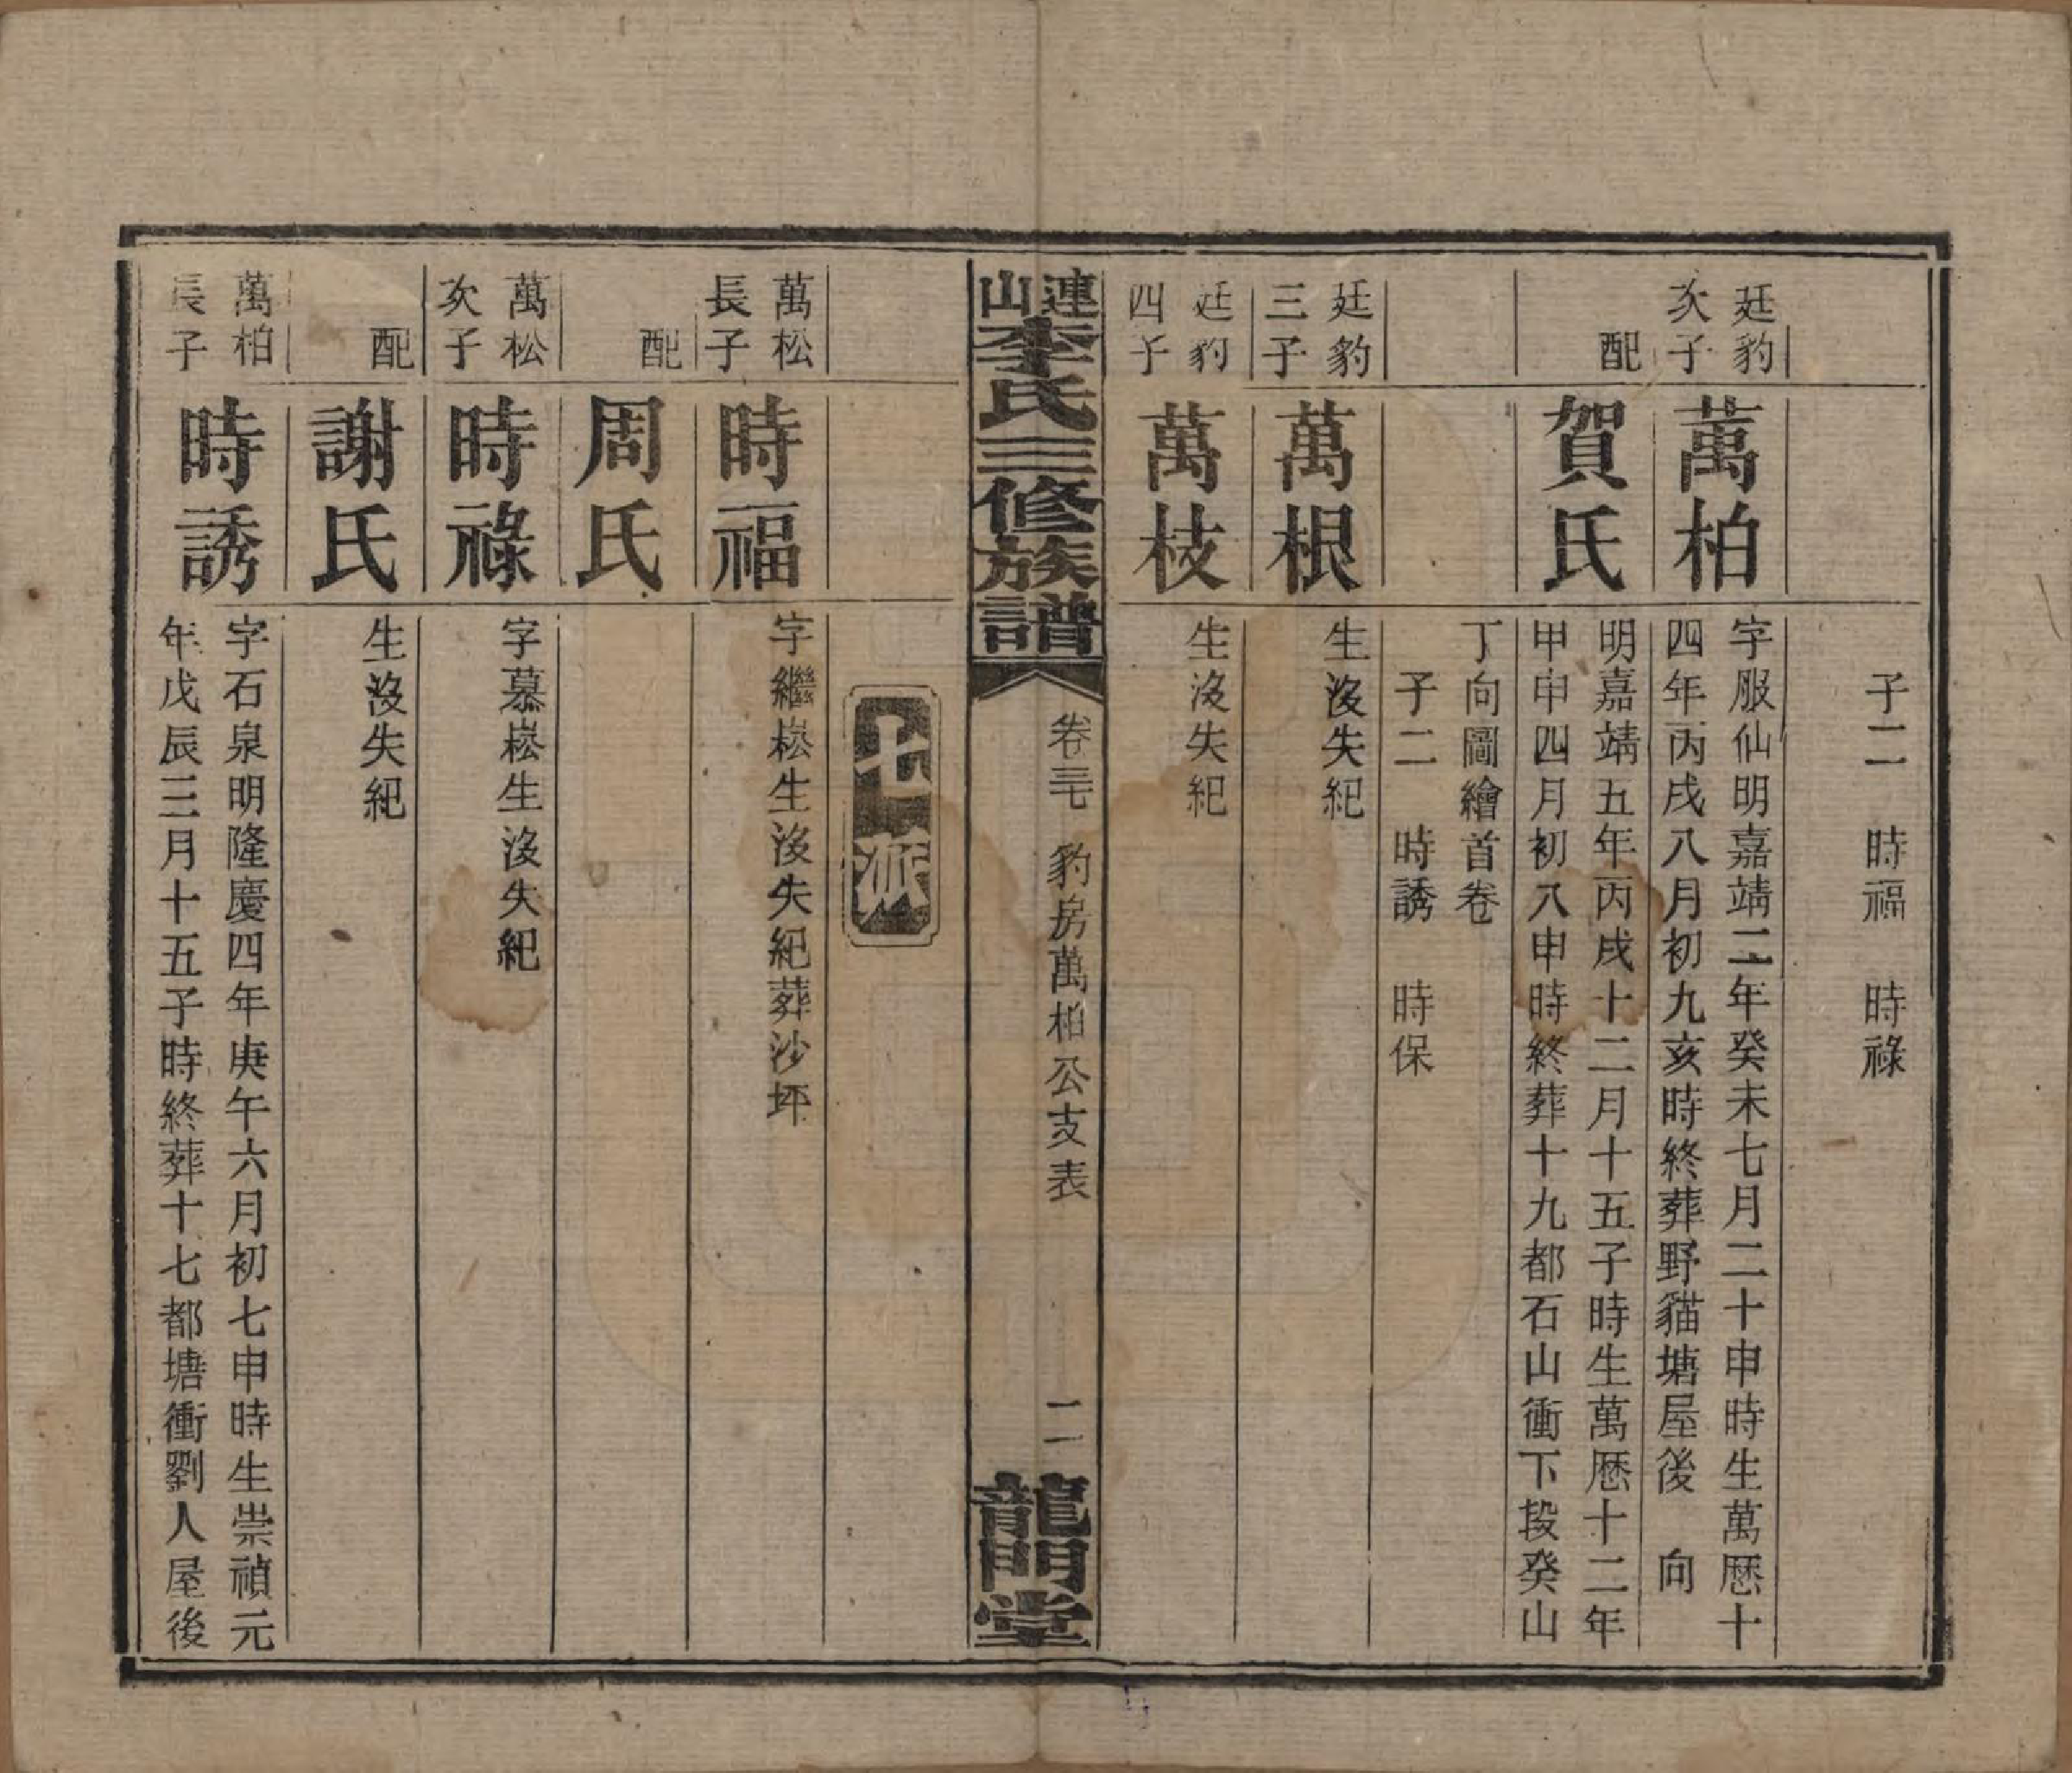 子二　時福　時祿
廷豹
次子
萬柏
字服仙明嘉靖二年癸未七月二十申時生萬歷十
四年丙戌八月初九亥時終葬野貓塘屋後　向
配
賀氏
明嘉靖五年丙戌十二月十五子時生萬歷十二年
甲申四月初八申時終葬十九都石山衝下段癸山
丁向圖繪首卷
子二　時誘　時保
廷豹
三子
萬根
生沒失紀
廷豹
四子
萬枝
生沒失紀
連山李氏三修族譜
卷三　豹房萬柏公支表
二
龍門堂
七派
萬松
長子
時福
字繼崧生沒失紀葬沙坪
配
周氏
萬松
次子
時祿
字慕崧生沒失紀
配
謝氏
生沒失紀
萬柏
長子
時誘
字石泉明隆慶四年庚午六月初七申時生崇禎元
年戊辰三月十五子時終葬十七都塘衝劉人屋後